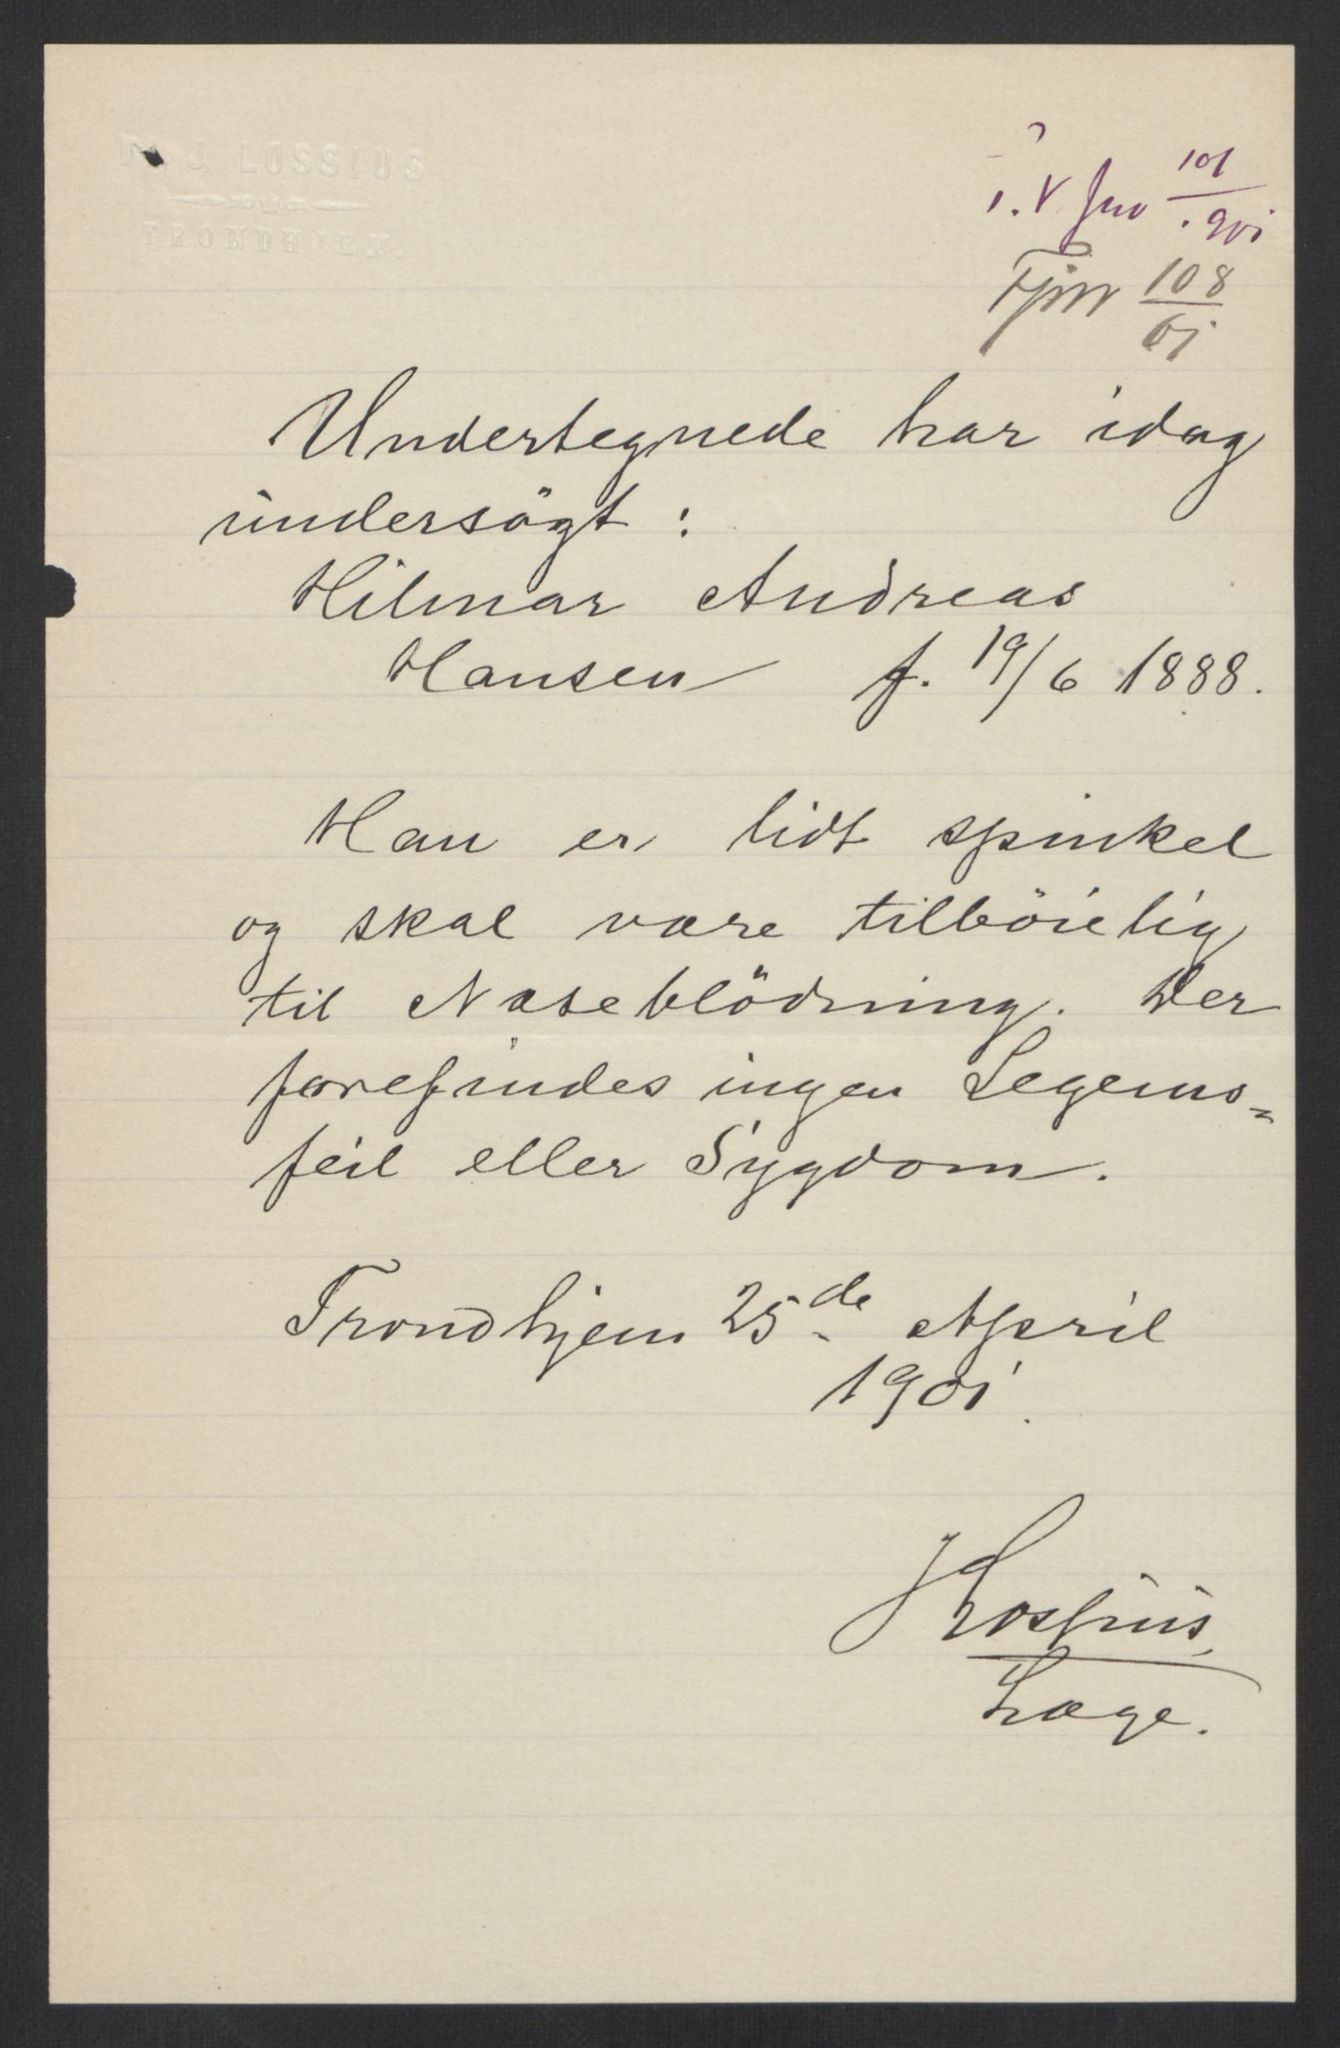 J LOSSIUS
TRONDHJEM.
101
901
108
01
Undertegnede har idag
undersögt :
Hilmar Andreas
Hansen f. 19/6 1888.
Han er lidt spinkel
og skal være tilböielig
til Næseblödning. Der
forefindes ingen Legems=
feil eller Sygdom.
Trondhjem 25de April
1901.
J Lossius
Læge.